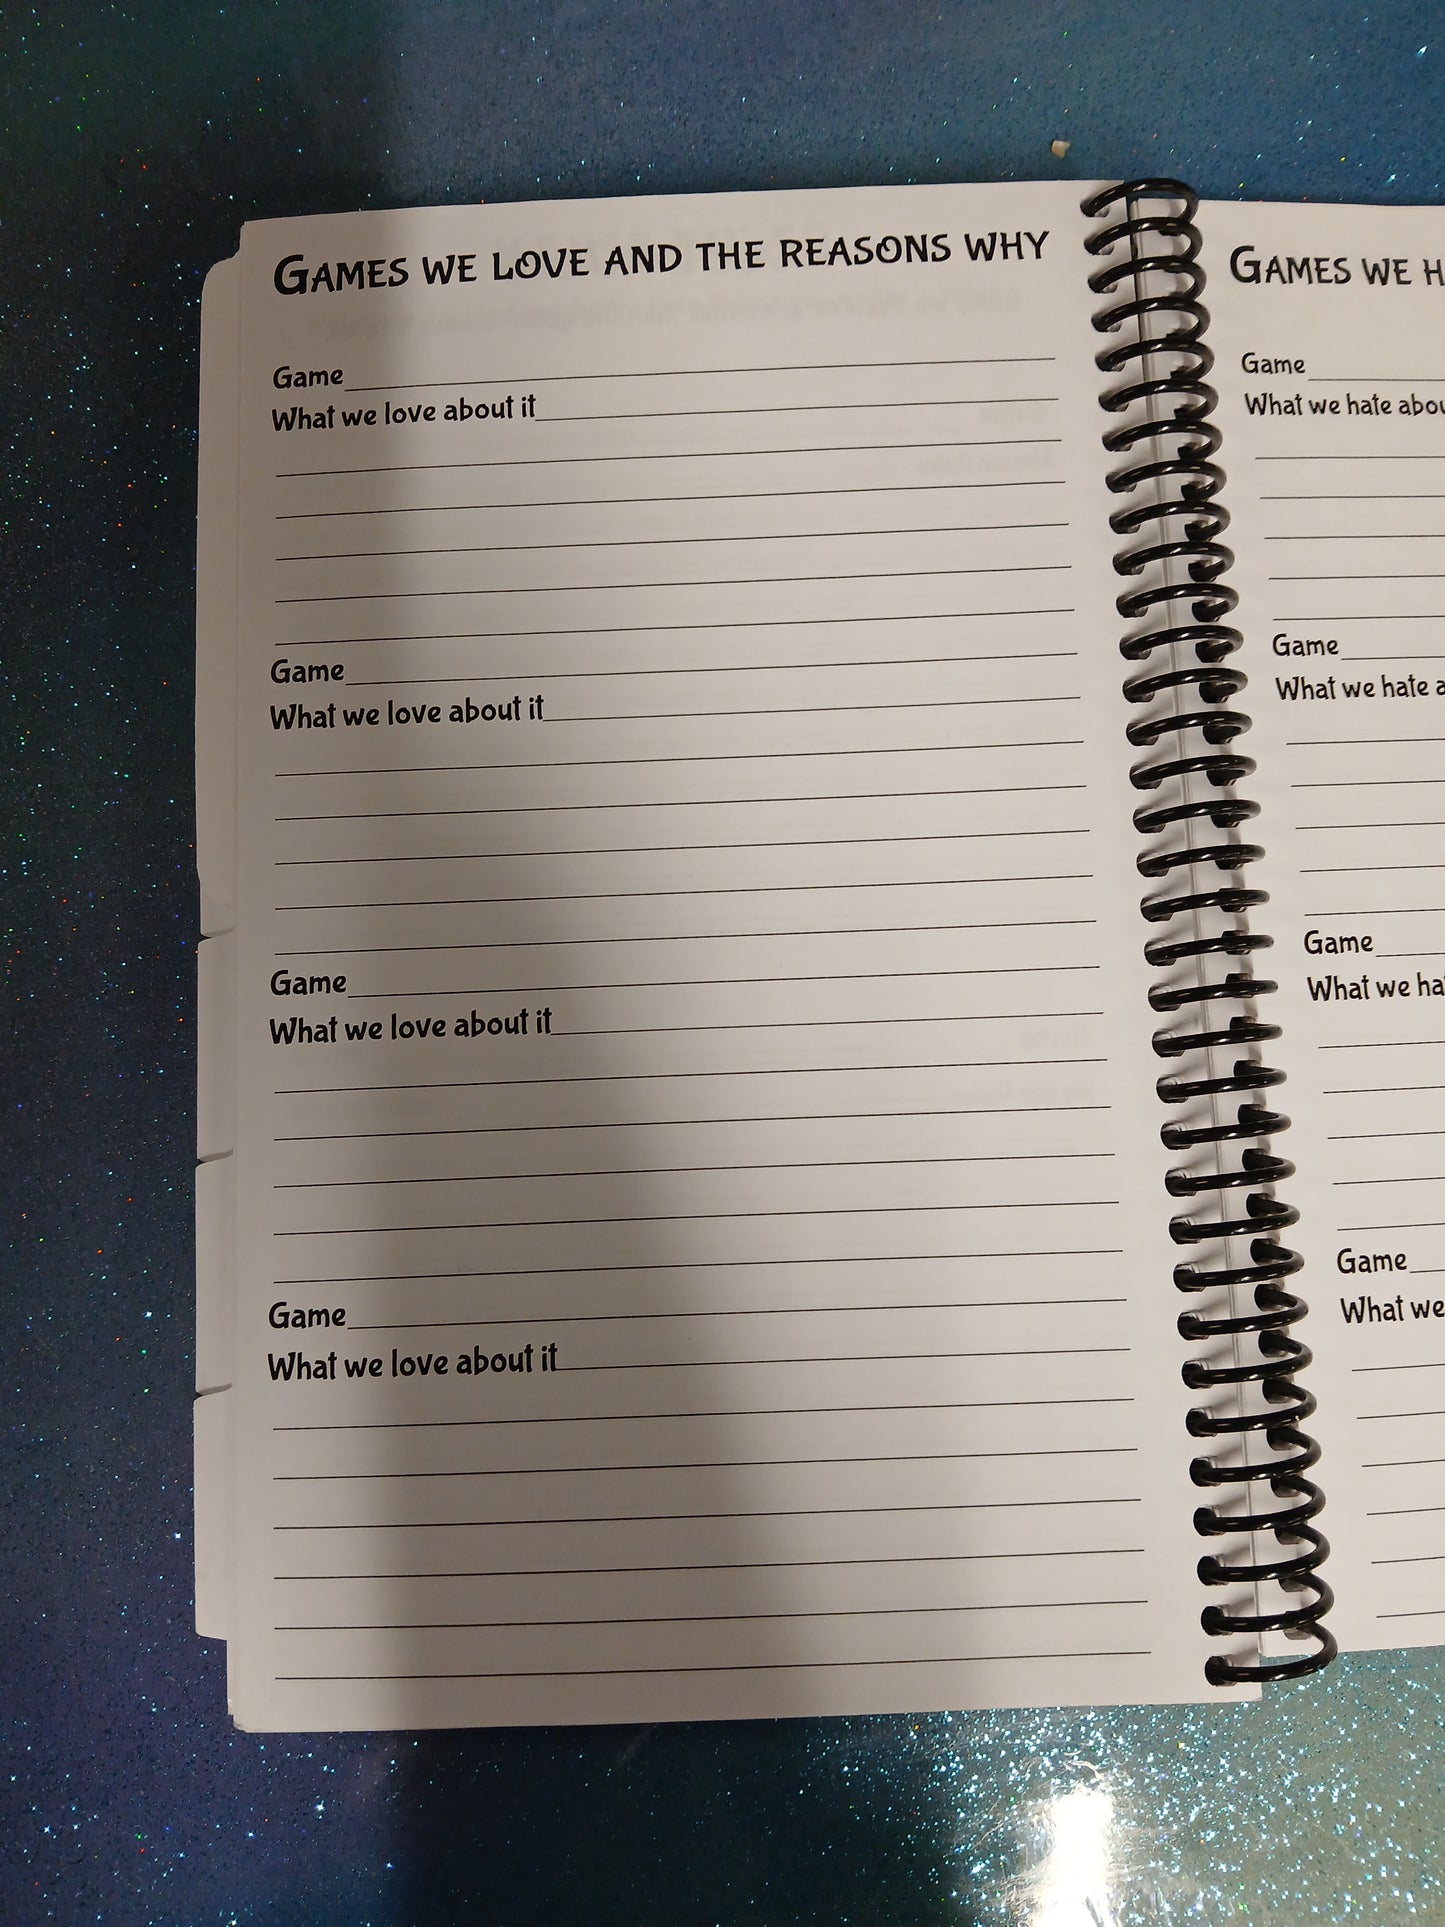 Games we love and the reasons why
Game
What we love about it
Game
What we love about it
Game
What we love about it
Game
What we love about it
Games we
Game
What we hate
Game
What we hate
Game
What we
Game
What we